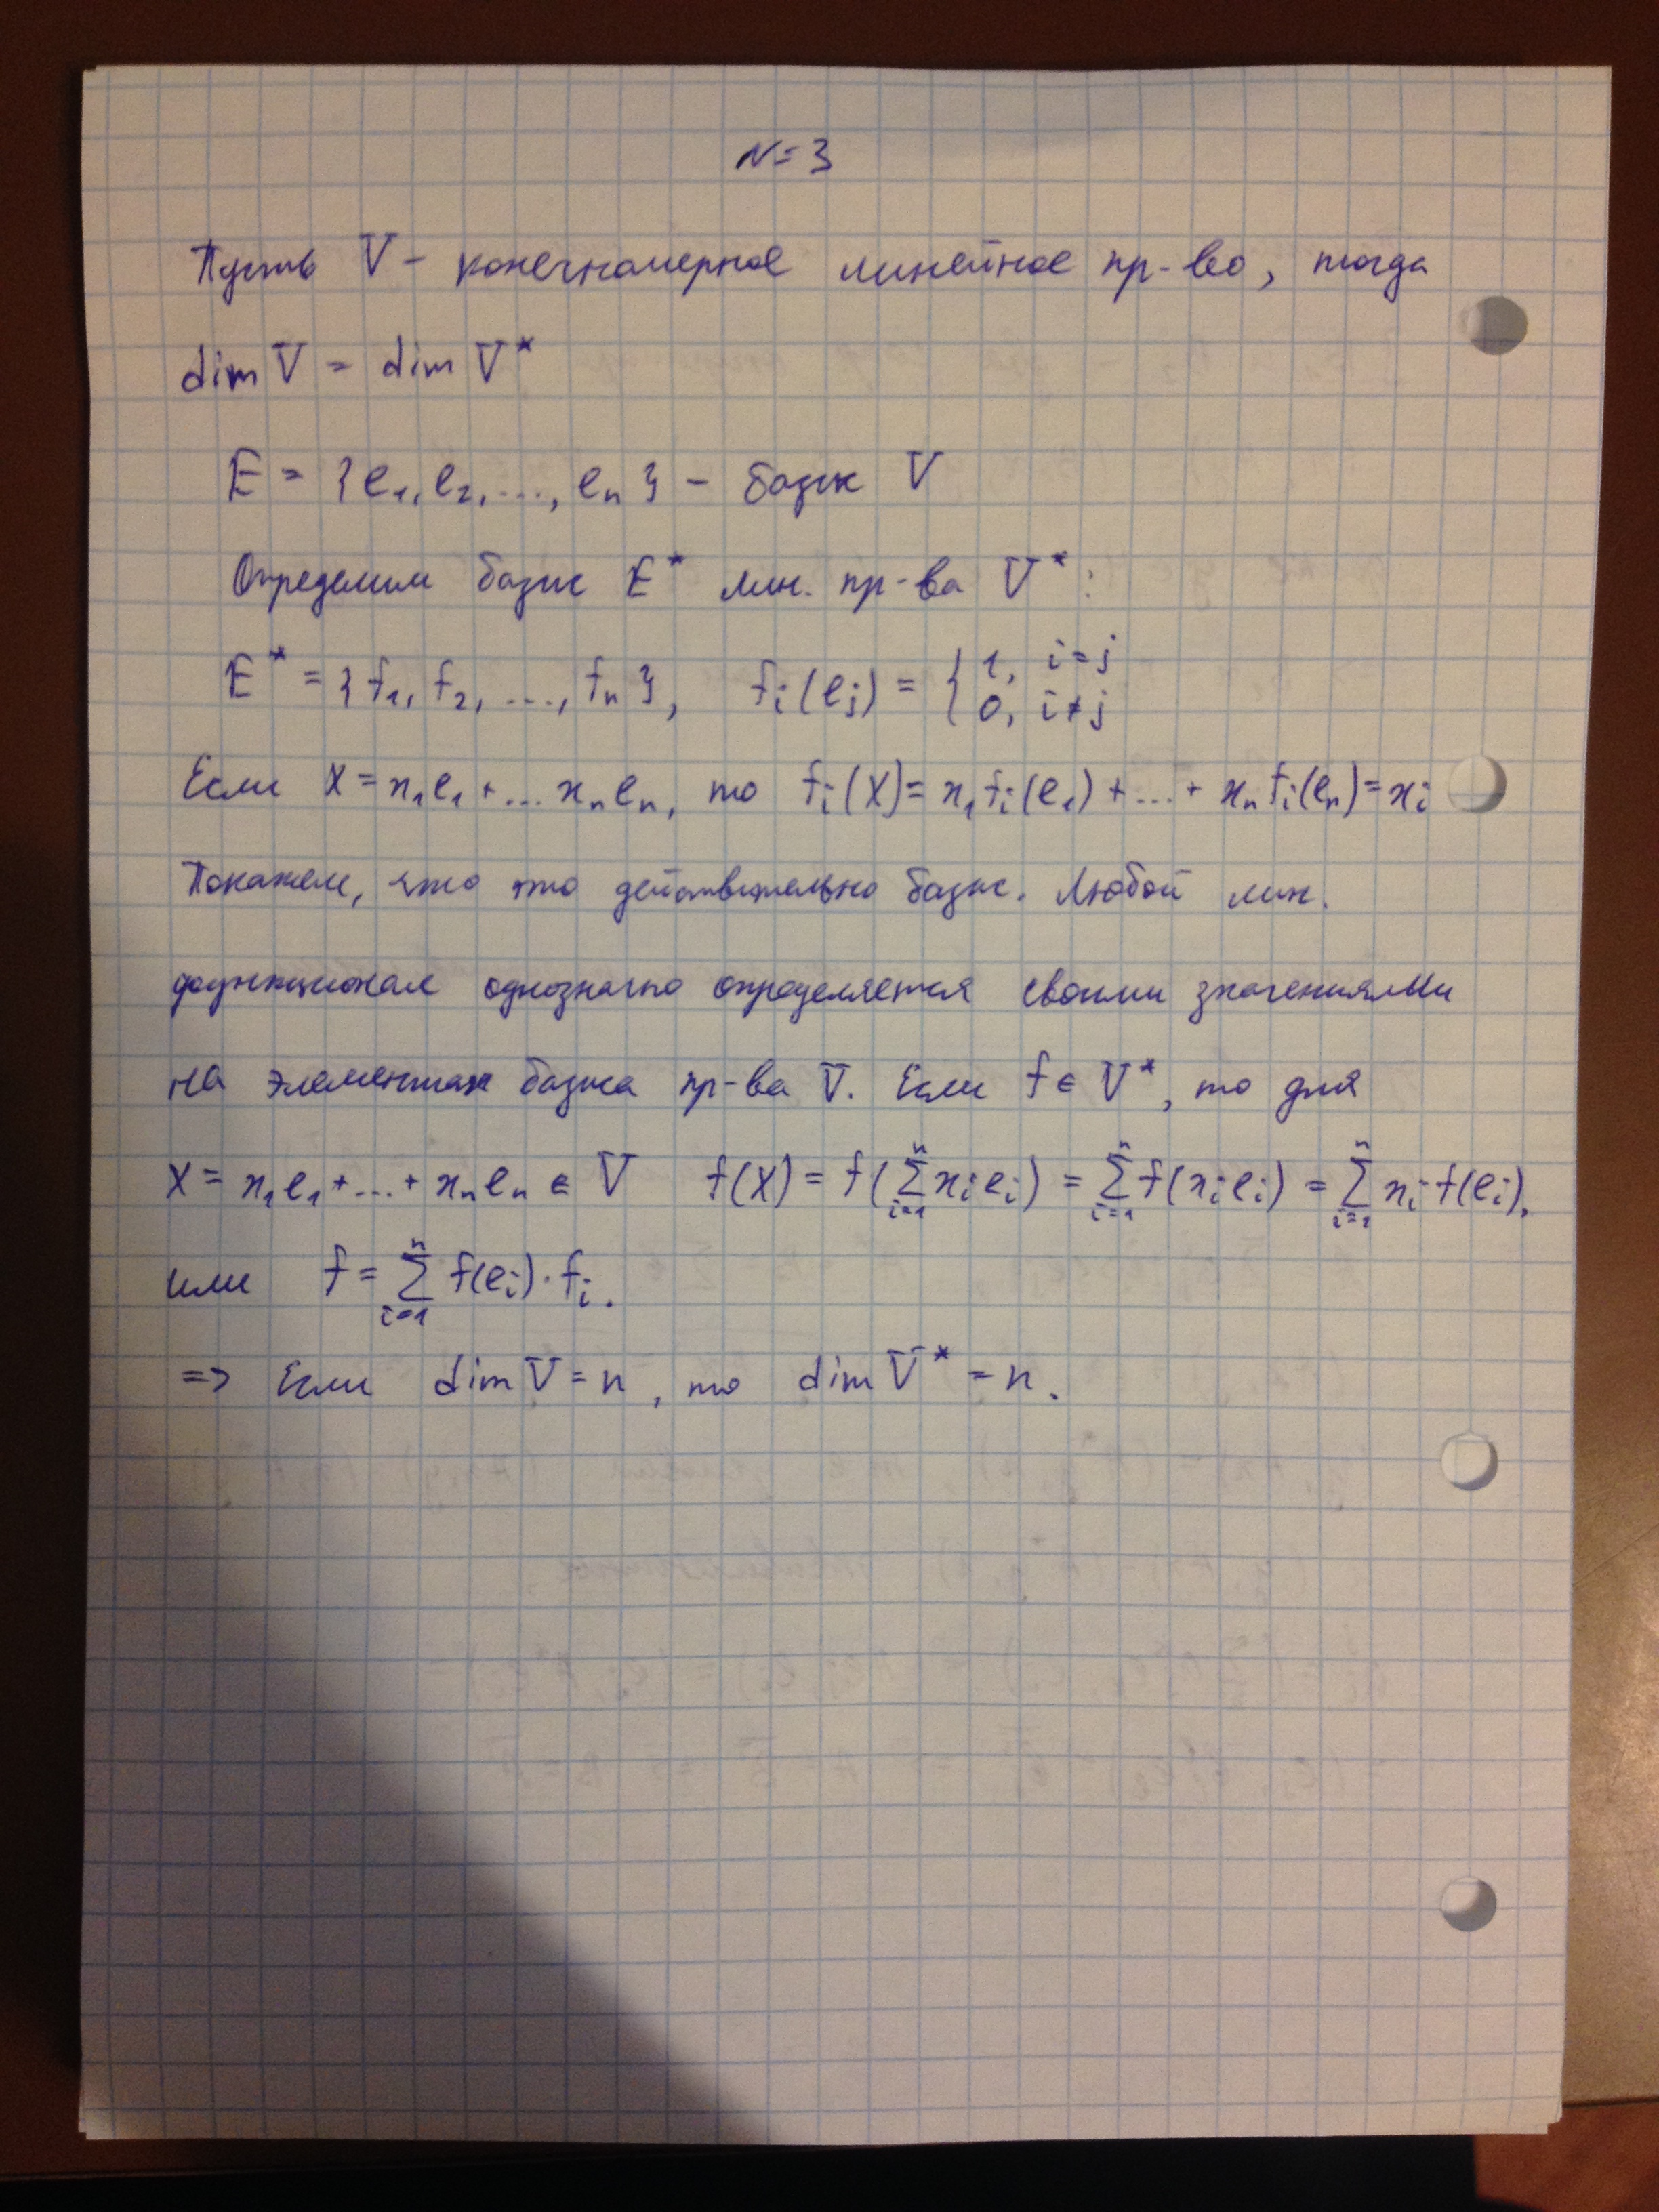 N=3
Пусть V - конечномерное линейное пр-во, тогда
dim V = dim V*
E = {e₁, e₂, ..., eₙ} - базис V
Определим базис E* лин. пр-ва V*:
E* = {f₁, f₂, ..., fₙ}, fᵢ(eⱼ) = { 1, i=j
0, i≠j
Если X = x₁e₁ + ... xₙeₙ, то fᵢ(X) = x₁fᵢ(e₁) + ... + xₙfᵢ(eₙ) = xᵢ
Покажем, что это действительно базис. Любой лин.
функционал однозначно определяется своими значениями
на элементах базиса пр-ва V. Если f ∈ V*, то для
X = x₁e₁ + ... + xₙeₙ ∈ V f(X) = f(∑ᵢ₌₁ⁿ xᵢeᵢ) = ∑ᵢ₌₁ⁿ f(xᵢeᵢ) = ∑ᵢ₌₁ⁿ xᵢ f(eᵢ),
или f = ∑ᵢ₌₁ⁿ f(eᵢ)·fᵢ.
=> Если dim V = n, то dim V* = n.